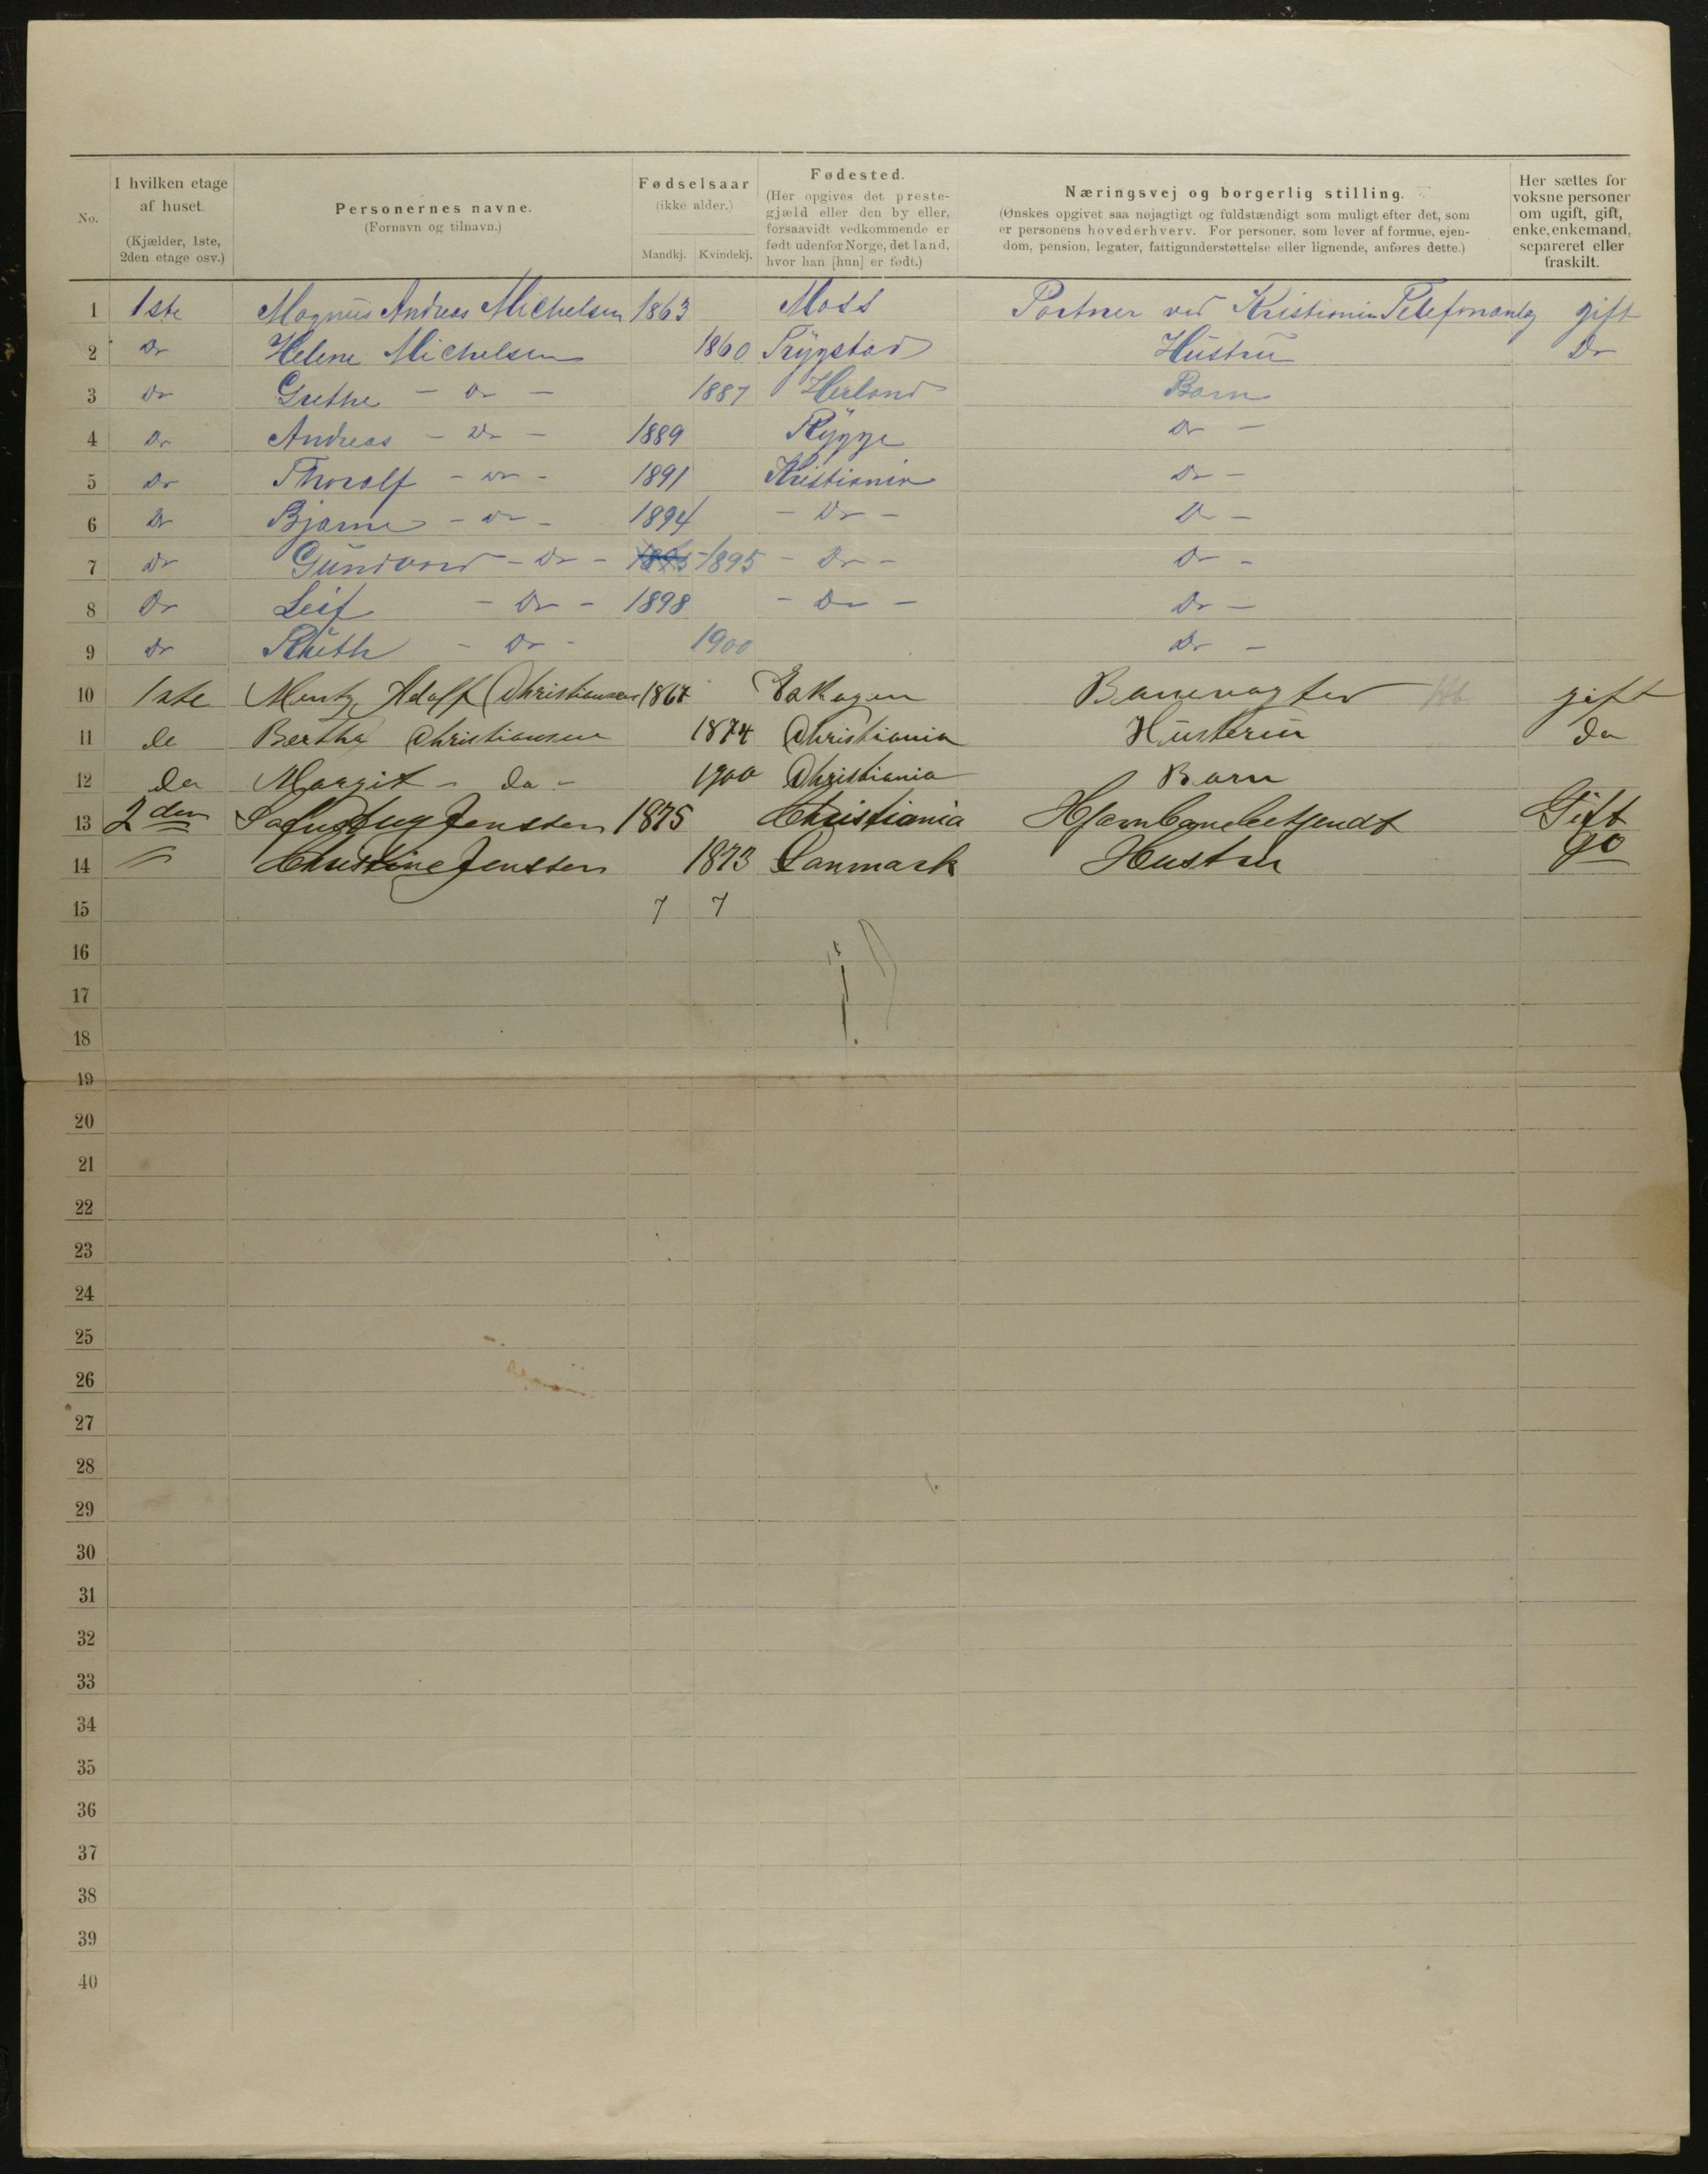 No.
I hvilken etage af huset. (Kjælder, 1ste, 2den etage osv.)
Personernes navne. (Fornavn og tilnavn.)
Fødselsaar (ikke alder.) Mandkj. Kvindekj.
Fødested. (Her opgives det prestegjæld eller den by eller, forsaavidt vedkommende er født udenfor Norge, det land, hvor han [hun] er født.)
Næringsvej og borgerlig stilling. (Ønskes opgivet saa nøjagtigt og fuldstændigt som muligt efter det, som er personens hovederhverv. For personer, som lever af formue, ejendom, pension, legater, fattigunderstøttelse eller lignende, anføres dette.)
Her sættes for voksne personer om ugift, gift, enke, enkemand, separeret eller fraskilt.
1 1ste Magnus Andreas Michelsen 1863 Moss Portner ved Kristiania Telefonanlæg gift
2 Do Helene Michelsen 1860 Trygstad Hustru Do
3 Do Grethe - Do - 1887 Herland Barn
4 Do Andreas - Do - 1889 Rygge Do -
5 Do Thoralf - Do - 1891 Kristiania Do -
6 Do Bjarne - Do - 1894 - Do - Do -
7 Do Gundvor - Do - 1895 - 1895 - Do - Do -
8 Do Leif - Do - 1898 - Do - Do -
9 Do Ruth - Do - 1900 Do -
10 1ste Mentz Adolf Christiansen 1867 Banevogter gift
11 do Bertha Christiansen 1874 Christiania Husteru do
12 do Margit - do - 1900 Christiania Barn
13 2den Jenssen 1875 Christiania Hjærnbanebetjendt Gift
14 " Christine Jenssen 1873 Danmark Hustru Do
15 7 7
16
17
18
19
20
21
22
23
24
25
26
27
28
29
30
31
32
33
34
35
36
37
38
39
40